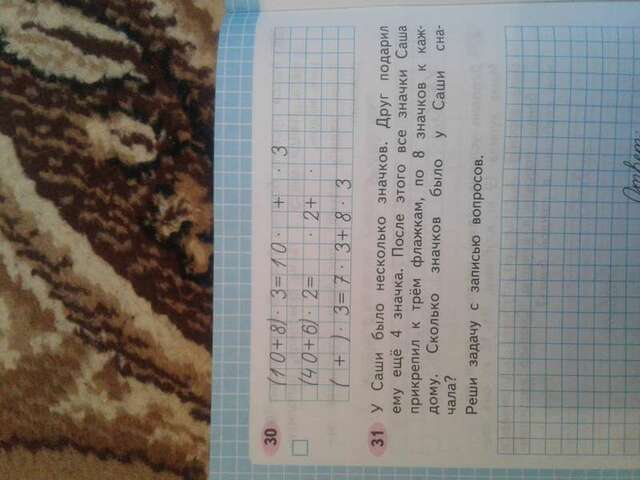 30
(10+8) · 3 = 10 ·   +   · 3
(40+6) · 2 =   · 2 +   ·
(  +  ) · 3 = 7 · 3 + 8 · 3
31 У Саши было несколько значков. Друг подарил
ему ещё 4 значка. После этого все значки Саша
прикрепил к трём флажкам, по 8 значков к каж-
дому. Сколько значков было у Саши сна-
чала?
Реши задачу с записью вопросов.
Ответ